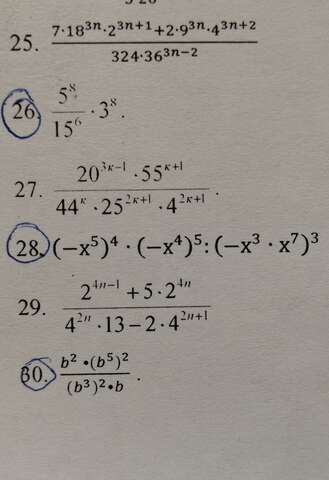 25. \frac{7·18^{3n}·2^{3n+1}+2·9^{3n}·4^{3n+2}}{324·36^{3n−2}}
26. \frac{5^8}{15^6} · 3^8.
27. \frac{20^{3к−1} · 55^{к+1}}{44^к · 25^{2к+1} · 4^{2к+1}}.
28. (−x^5)^4 · (−x^4)^5 : (−x^3 · x^7)^3
29. \frac{2^{4n−1} + 5 · 2^{4n}}{4^{2n} · 13 − 2 · 4^{2n+1}}
30. \frac{b^2 •(b^5)^2}{(b^3)^2•b}.